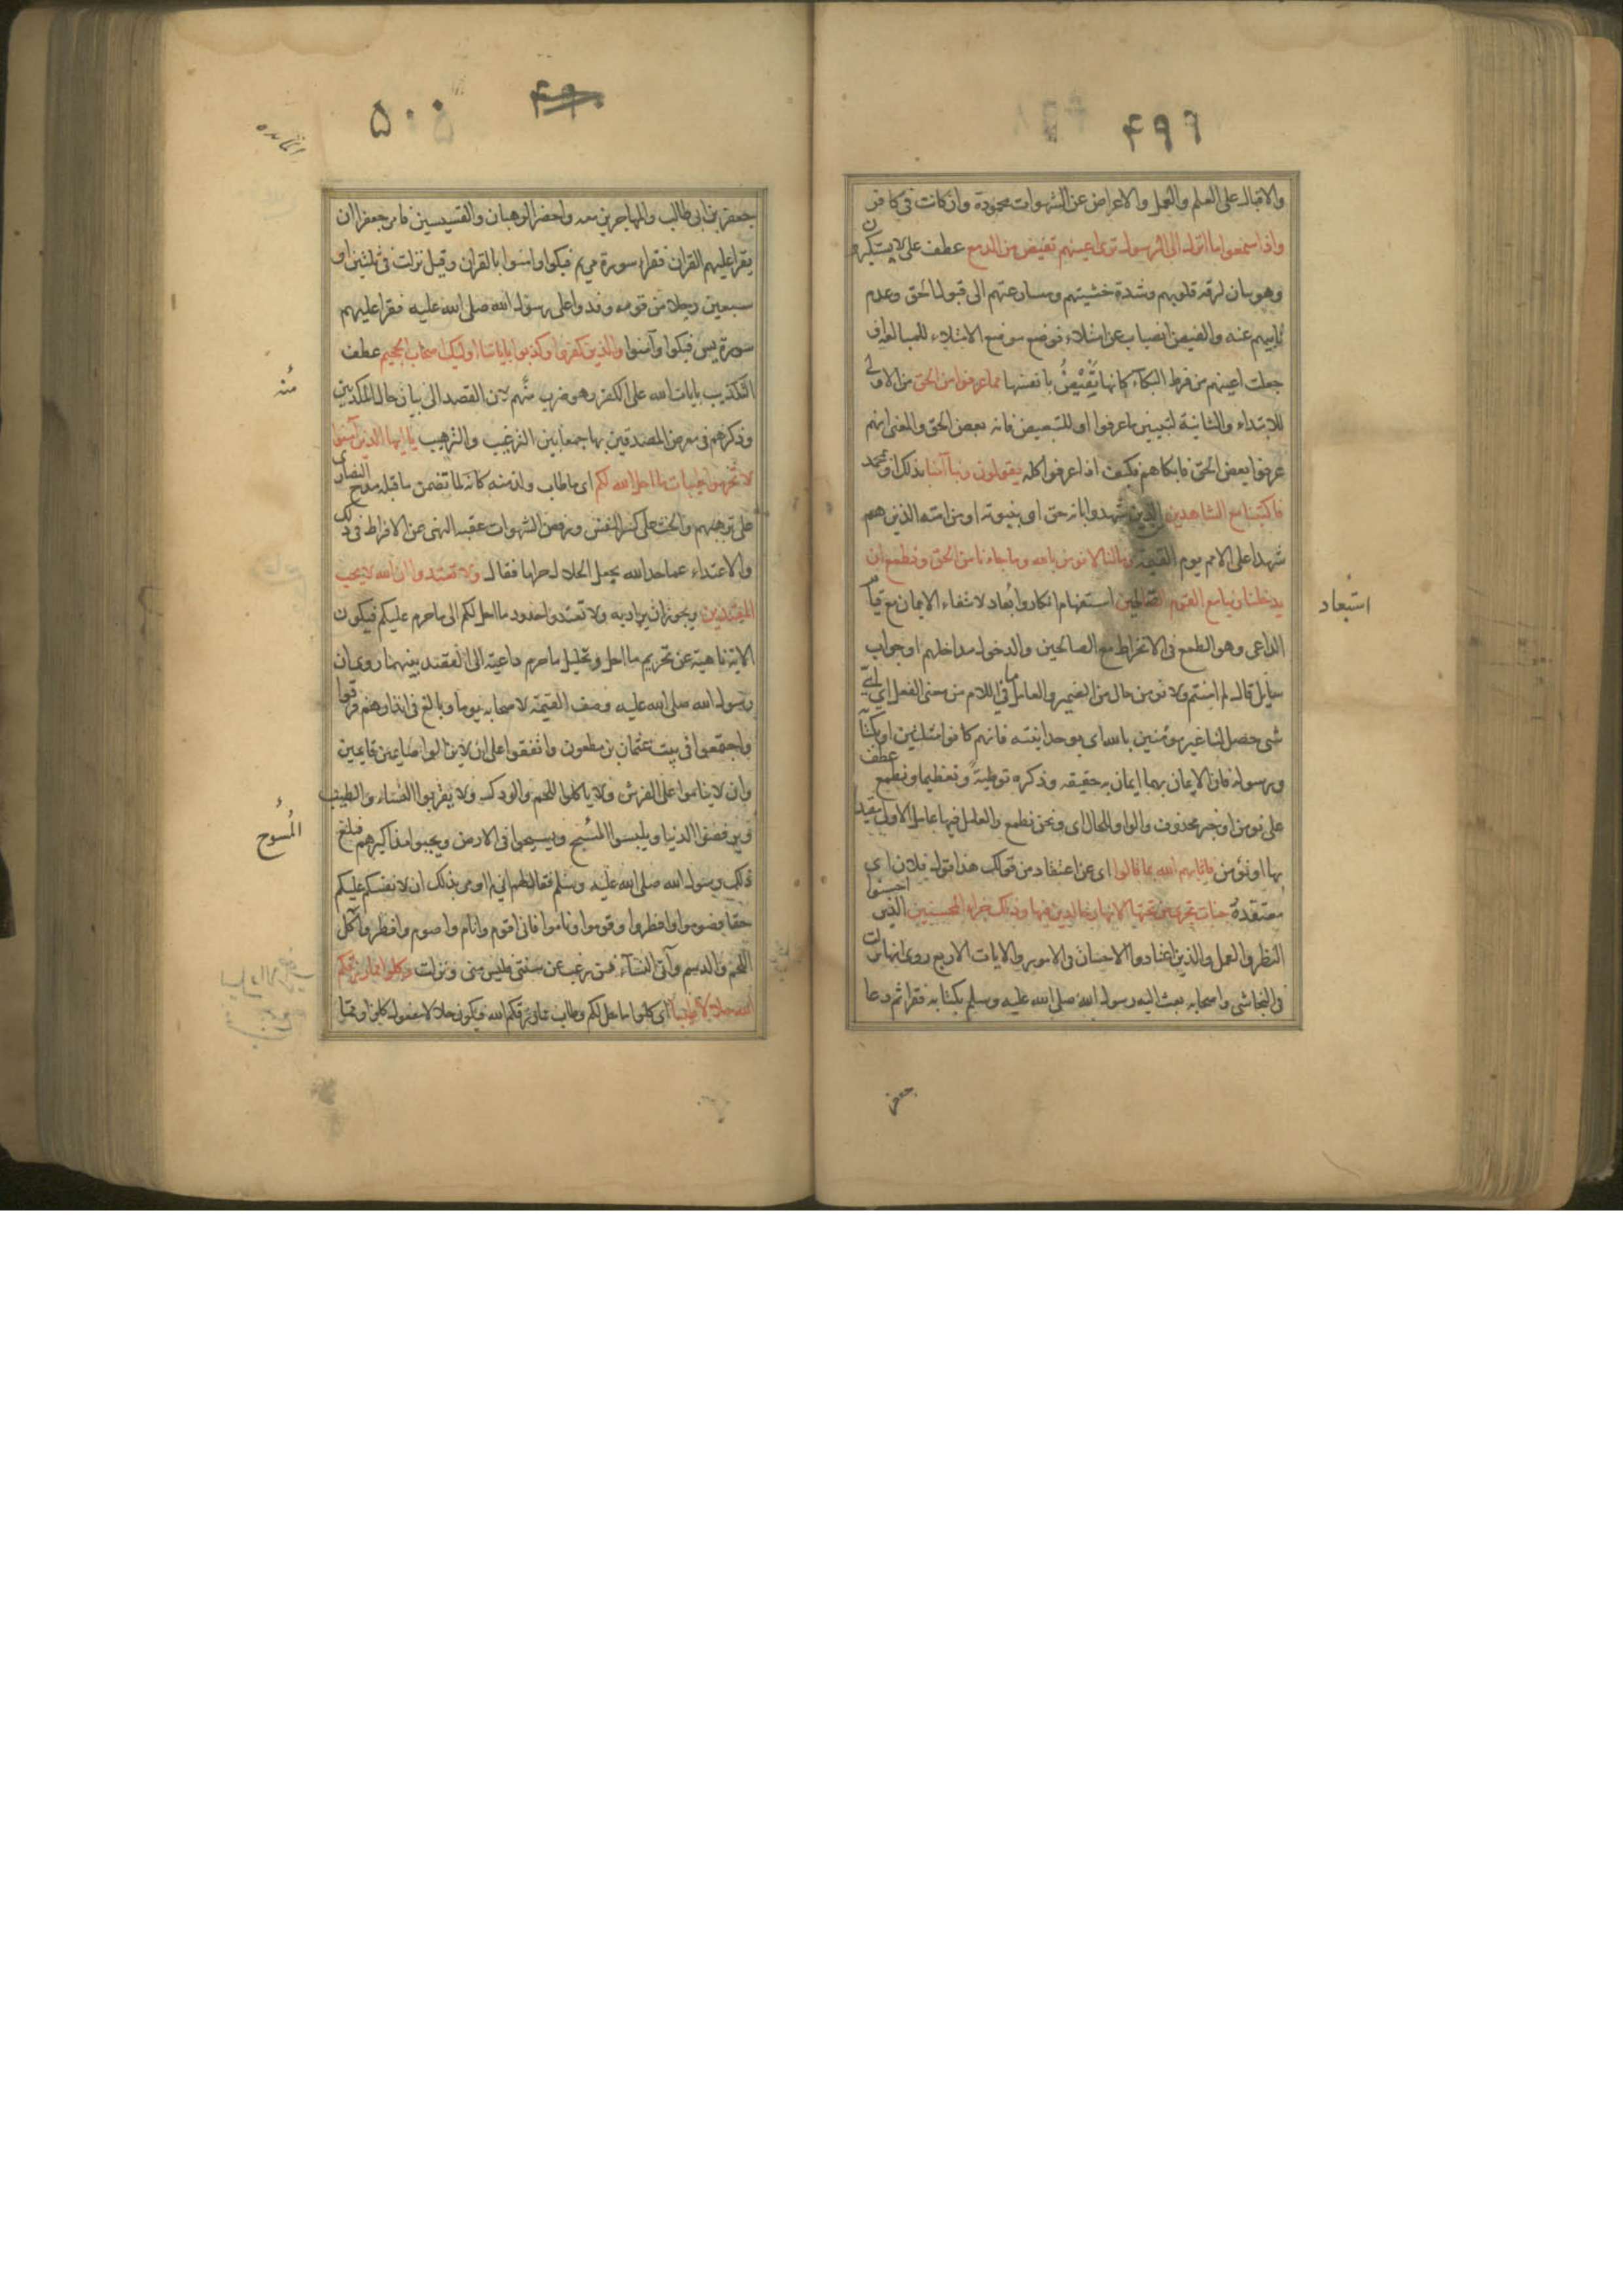 ۴۹۹
والاقبال على العلم والعمل والاعراض عن الشهوات محمودة وان كانت في كافر
واذا سمعوا ما انزل الى الرسول ترى اعينهم تفيض من الدمع عطف على لا يستكبرون
وهو بيان لرقة قلوبهم وشدة خشيتهم ومسارعتهم الى قبول الحق وعدم
تأبيهم عنه والفيض انصباب عن امتلاء فوضع موضع الامتلاء للمبالغة او
جعلت اعينهم من فرط البكآء كانها تَفِيْضُ بانفسها مما عرفوا من الحق من الاولى
للابتداء والثانية لتبيين ما عرفوا او للتبعيض فانه بعض الحق والمعنى انهم
عرفوا بعض الحق فابكاهم فكيف اذا عرفوا كله يقولون ربنا آمنا بذلك او بمحمد
فاكتبنا مع الشاهدين الذين شهدوا بانه حق او بنبوته او من امته الذين هم
شهدا على الامم يوم القيمة وما لنا لا نومن بالله وما جاءنا من الحق ونطمع ان
يدخلنا ربنا مع القوم الصالحين استفهام انكار وابعاد لانتفاء الايمان مع قيام
استبعاد
الداعى وهو الطمع في الانخراط مع الصالحين والدخول مداخلهم او جواب
سايل قال لم امنتم ولا نومن حال من الضمير والعامل ما في اللام من معنى الفعل اي اي
شى حصل لنا غير مومنين بالله اى بوحدانيته فانهم كانوا مثلثين او بكتابه
ورسوله فان الايمان بهما ايمان به حقيقه وذكره توطيةً وتعظيما ونطمع عطف
على نومن او خبر محذوف والواو للحال اى ونحن نطمع والعامل فيها عامل الاولى مقيدا
بها او نؤمن فاثابهم الله بما قالوا اى عن اعتقاد من قولك هذا قول فلان اى
معتقده جنات تجرى من تحتها الانهار خالدين فيها وذلك جزاء المحسنين الذين احسنوا
النظر والعمل والذين اعتادوا الاحسان في الامور والايات الاربع روى انها نزلت
في النجاشى واصحابه بعث اليه رسول الله صلى الله عليه وسلم بكتابه فقرا ثم دعا
جعفر
۵۰۰
المائده
جعفر بن ابى طالب والمهاجرين معه واحضر الرهبان والقسيسين فامر جعفرا ان
يقرا عليهم القران فقراء سورة مريم فبكوا وامنوا بالقران وقيل نزلت في ثلثين او
سبعين رجلا من قومه وفدوا على رسول الله صلى الله عليه فقرا عليهم
سورة يس فبكوا وآمنوا والذين كفروا وكذبوا باياتنا اوليك اصحاب الجحيم عطف
التكذيب بايات الله على الكفر وهو ضرب منهم لان القصد الى بيان حال المكذبين
مُنه
وذكرهم في معرض المصدقين بها جمعا بين الترغيب والترهيب يا ايها الذين آمنوا
لا تحرموا طيبات ما احل الله لكم اى ما طاب ولذ منه كانه لما تضمن ما قبله مدح النصارى
على ترهبهم والحث على كسر النفس ورفض الشهوات عقبه النهى عن الافراط في ذلك
والاعتداء عما حد الله بجعل الحلال حراما فقال ولا تعتدوا ان الله لا يحب
المعتدين ويجوز ان يراد به ولا تعتدوا حدود ما احل لكم الى ما حرم عليكم فيكون
الاية ناهية عن تحريم ما احل وتحليل ما حرم داعية الى القصد بينهما روى ان
رسول الله صلى الله عليه وصف القيمة لاصحابه يوما وبالغ في انذارهم فرقوا
واجتمعوا في بيت عثمان بن مظعون واتفقوا على ان لا يزالوا صايمين قايمين
وان لا يناموا على الفرش ولا ياكلوا اللحم والودك ولا يقربوا النساء والطيب
ويرفضوا الدنيا ويلبسوا المُسُح ويسيحوا في الارض ويجبوا مذاكيرهم فبلغ
المُسوح
ذلك رسول الله صلى الله عليه وسلم فقال لهم اني لم اومر بذلك ان لانفسكم عليكم
حقا فصوموا وافطروا وقوموا وناموا فانى اقوم وانام واصوم وافطر وآكل
اللحم والدسم وآتى النسآء فمن رغب عن سنتى فليس منى ونزلت وكلوا مما رزقكم
الله حلالا طيبا اى كلوا ما حل لكم وطاب مما رزقكم الله فيكون حلالا مفعول كلوا ومما